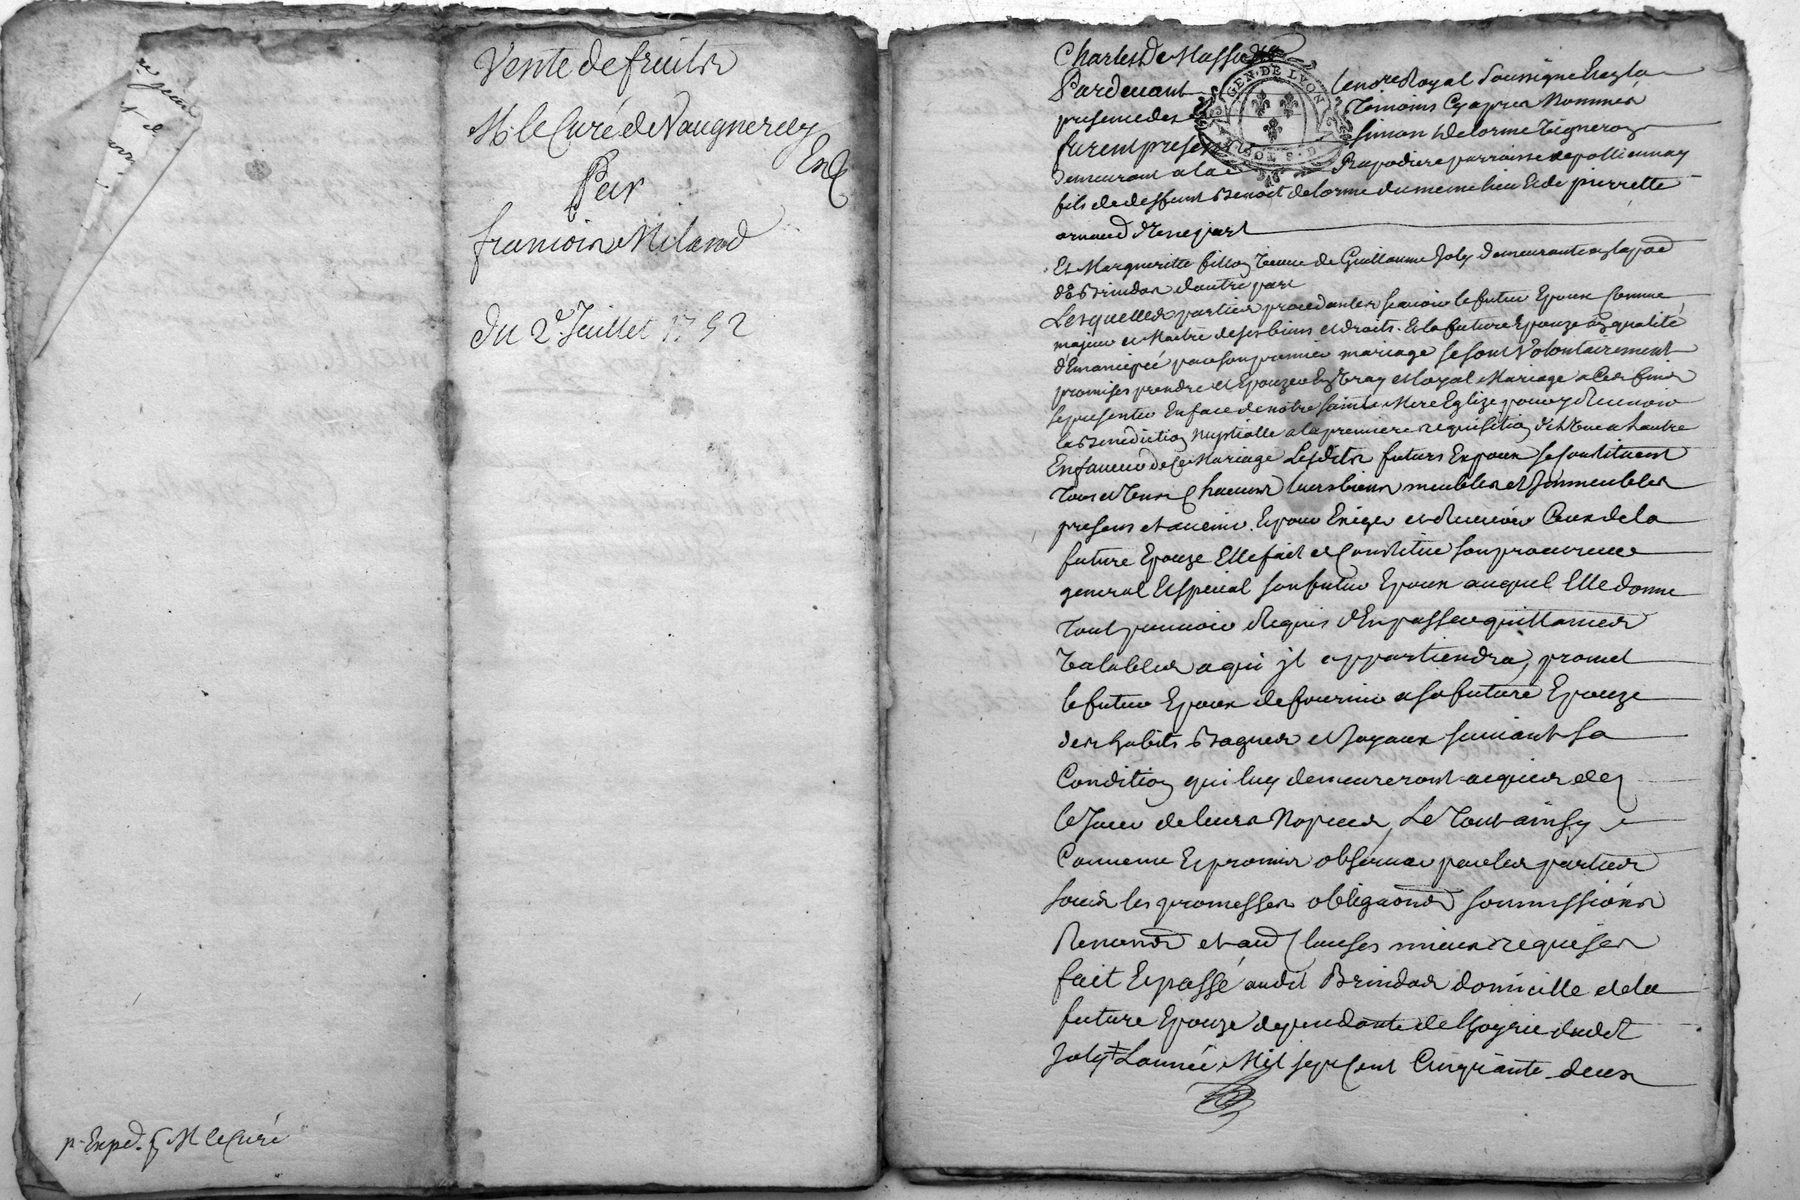 Vente de fruits
Mr. le Curé de Vaugneray
Exp
Par
francois Miland
du 2e. Juillet 1752
p. Exped. p M le Curé
Charles De
Pardevant le nore Royal Soussigné En la
presence des Temoins Cy apres Nommés
furent presens Simon delorme Vigneron
demeurant a la Rapodiere parroisse de pollionnay
fils de deffunt Benoit delorme du meme lieu Et de pierrette
arnaud d'Une part
Et Margueritte fillon Veuve de Guillaume Joly demeurante en la pad
de Brindas d'autre part
Lesquelles parties procedantes scavoir le futur Epoux Comme
majeur et Maitre de ses biens et droits. Et la future Epouze En qualité
d'Emancipée par son premier mariage se sont Volontairement
promises prendre et Epouzer En Vray et Loyal Mariage a Ces fins
se presenter En face de notre Sainte Mere Eglize pour y Recevoir
la Benediction Nuptialle a la premiere requisition de l'Une a L'autre
En faveur de Ce Mariage Lesdits futurs Epoux se Constituent
Tous et Uns Chacuns leurs biens meubles et Immeubles
presens et avenir. Et pour Exiger et Recevoir Ceux de la
future Epouze Elle fait et Constitue son procureur
general Et special son futur Epoux auquel Elle donne
Tout pouvoir Requis d'En passer quittances
Valables a qui jl appartiendra, promet
le futur Epoux de fournir a sa future Epouze
des habits Bagues et Joyaux suivant sa
Condition qui luy demeureront acquis des
le Jour de leurs Nopces, Le Tout ainsy
Convenu Et promis observer par les parties
sous les promesses obligaons soumissions
Renons et aud Clauses mieux requises
fait Et passé audit Brindas domicille de la
future Epouze dependante de L'hoyrie dudit
Joly ‡ L'année Mil sept Cent Cinquante deux